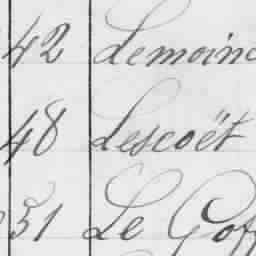 42 Lemoine
48 Lescoët
51 Le Goff